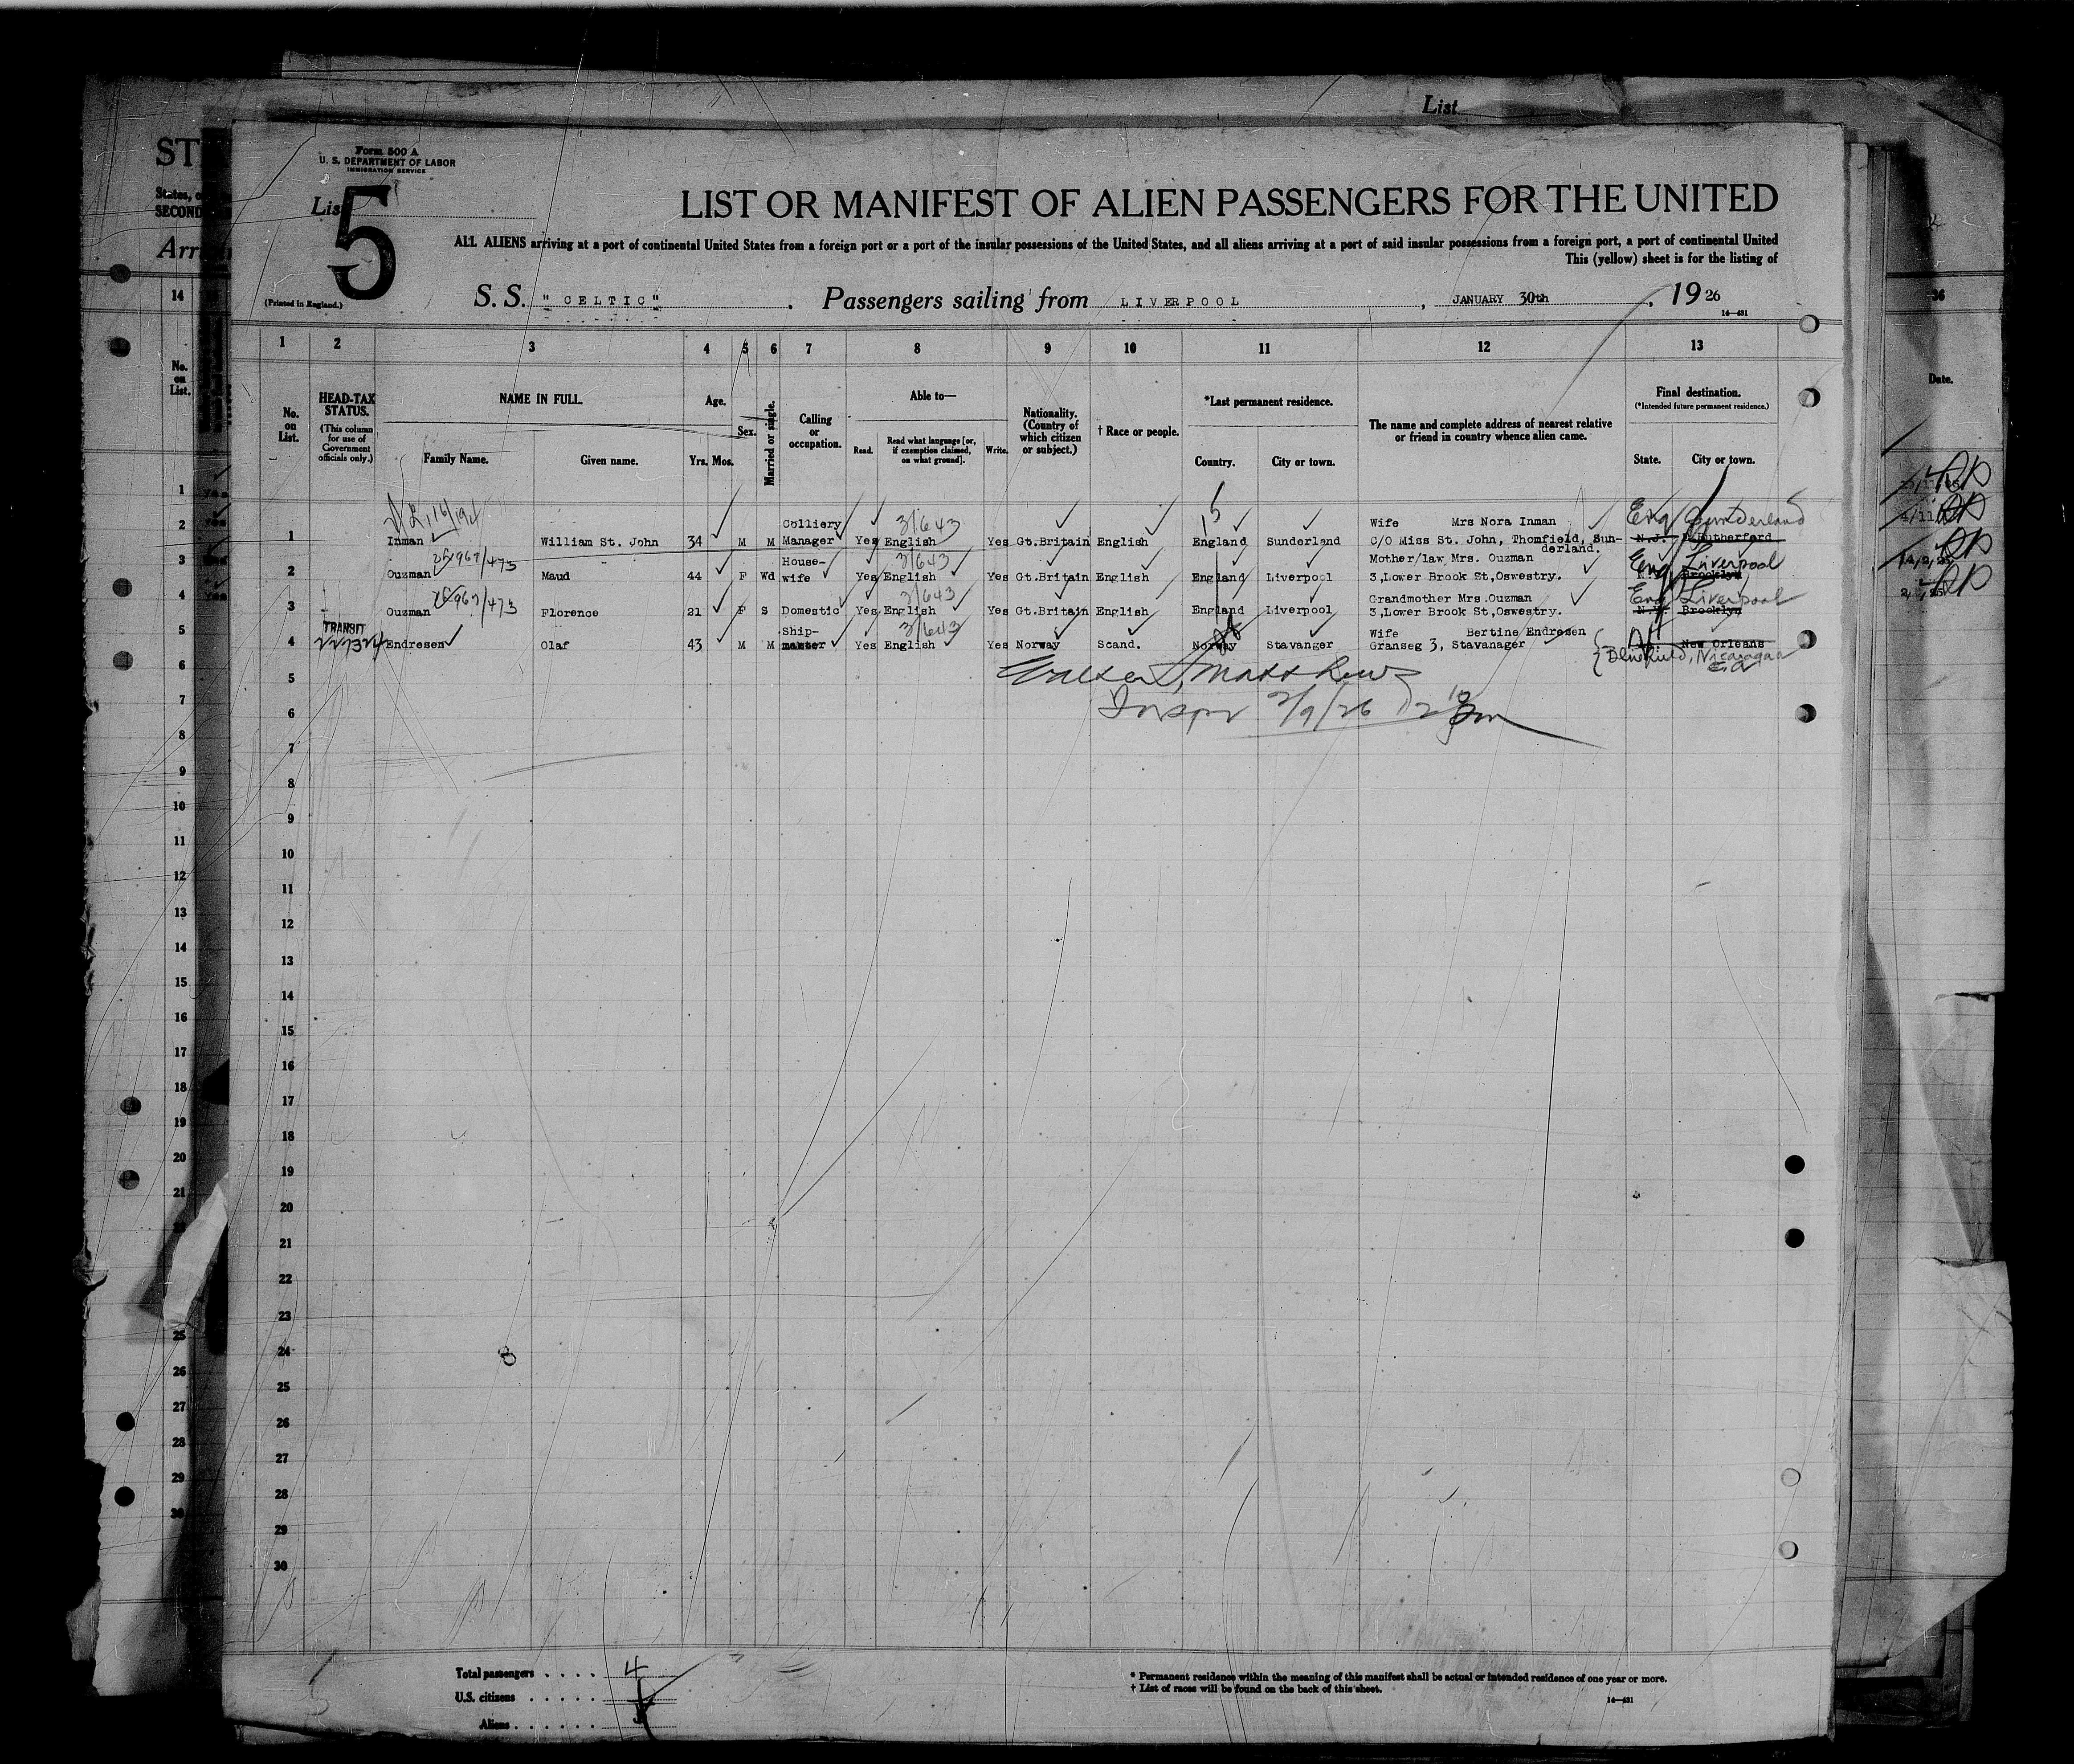 List
ST
States, o
SECOND
Arri
14
No.
on
List.
Form 500 A
U. S. DEPARTMENT OF LABOR
IMMIGRATION SERVICE
List
5
(Printed in England.)
LIST OR MANIFEST OF ALIEN PASSENGERS FOR THE UNITED
ALL ALIENS arriving at a port of continental United States from a foreign port or a port of the insular possessions of the United States, and all aliens arriving at a port of said insular possessions from a foreign port, a port of continental United
This (yellow) sheet is for the listing of
S. S. "CELTIC" , Passengers sailing from LIVERPOOL , JANUARY 30th , 1926
14—431
1 2 3 4 5 6 7 8 9 10 11 12 13
No. on List.
HEAD-TAX STATUS.
(This column for use of Government officials only.)
NAME IN FULL.
Family Name. Given name.
Age.
Yrs. Mos.
Sex.
Married or single.
Calling or occupation.
Able to—
Read. Read what language [or, if exemption claimed, on what ground]. Write.
Nationality. (Country of which citizen or subject.)
† Race or people.
*Last permanent residence.
Country. City or town.
The name and complete address of nearest relative or friend in country whence alien came.
Final destination.
(*Intended future permanent residence.)
State. City or town.
36
Date.
Colliery 3/643 Wife Mrs Nora Inman Eng Sunderland
1 Inman William St. John 34 M M Manager Yes English Yes Gt.Britain English England Sunderland C/O Miss St. John, Thomfield, Sunderland. N.J. Rutherford
967/473 House- 3/643 Mother/law Mrs. Ouzman Eng Liverpool
2 Ouzman Maud 44 F Wd wife Yes English Yes Gt.Britain English England Liverpool 3,Lower Brook St,Oswestry. Brooklyn
967/473 3/643 Grandmother Mrs.Ouzman Eng Liverpool
3 Ouzman Florence 21 F S Domestic Yes English Yes Gt.Britain English England Liverpool 3,Lower Brook St,Oswestry. N.Y. Brooklyn
TRANSIT Ship- 3/643 Wife Bertine Endresen
4 Endresen Olaf 43 M M master Yes English Yes Norway Scand. Norway Stavanger Granseg 3, Stavanager New Orleans
Bluefield, Nicaragua
5
6 Inspr 2/9/26
7
8
9
10
11
12
13
14
15
16
17
18
19
20
21
22
23
24
25
26
27
28
29
30
Total passengers . . . . 4
U.S. citizens . . . . .
Aliens . . . . . .
* Permanent residence within the meaning of this manifest shall be actual or intended residence of one year or more.
† List of races will be found on the back of this sheet.
14—431